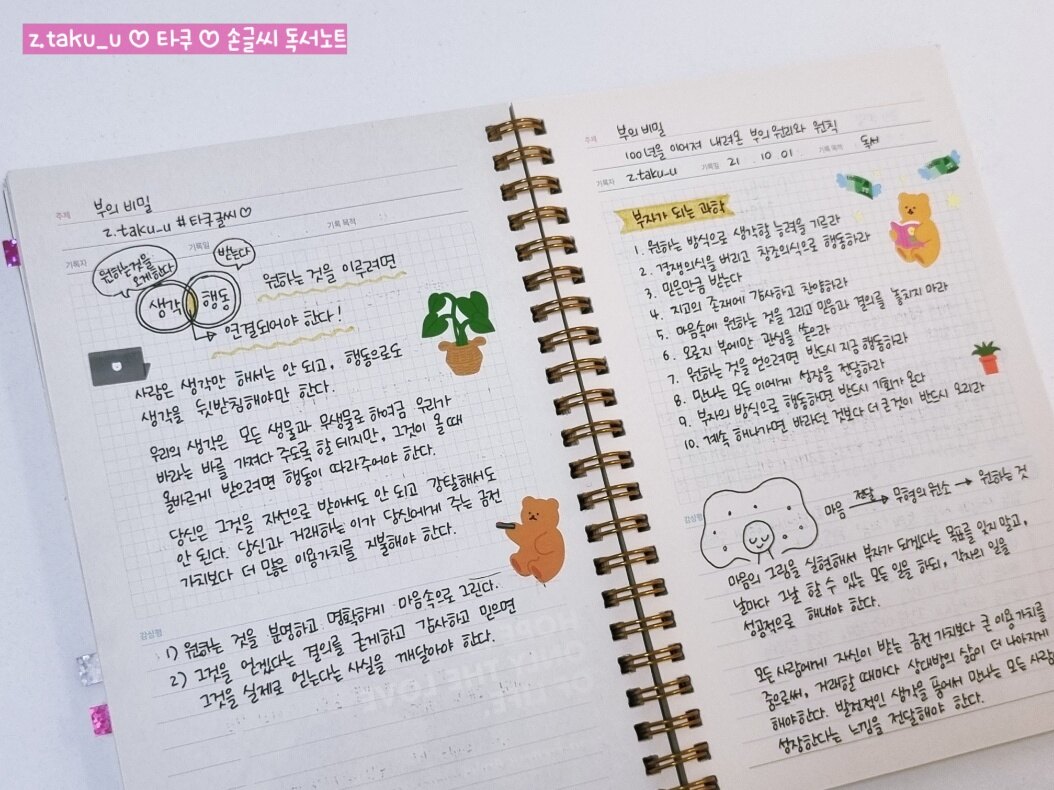 z.taku_u ♡ 타쿠 ♡ 손글씨 독서노트
주제 부의 비밀
z.taku_u #타쿠글씨♡
기록자 기록일 기록 목적
원하는 것을
오게한다
받는다
생각 행동
원하는 것을 이루려면
연결되어야 한다!
사람은 생각만 해서는 안 되고, 행동으로도
생각을 뒷받침해야만 한다.
우리의 생각은 모든 생물과 무생물로 하여금 우리가
바라는 바를 가져다 주도록 할 테지만, 그것이 올 때
올바르게 받으려면 행동이 따라주어야 한다.
당신은 그것을 자선으로 받아서도 안 되고 강탈해서도
안 된다. 당신과 거래하는 이가 당신에게 주는 금전
가치보다 더 많은 이용가치를 지불해야 한다.
감상평
1) 원하는 것을 분명하고 명확하게 마음속으로 그린다.
2) 그것을 얻겠다는 결의를 굳게하고 감사하고 믿으면
그것을 실제로 얻는다는 사실을 깨달아야 한다.
주제 부의 비밀
100년을 이어져 내려온 부의 원리와 원칙
기록자 z.taku_u 기록일 21 10 01 기록 목적 독서
부자가 되는 과학
1. 원하는 방식으로 생각할 능력을 기르라
2. 경쟁의식을 버리고 창조의식으로 행동하라
3. 믿은만큼 받는다
4. 지고의 존재에 감사하고 찬양하라
5. 마음속에 원하는 것을 그리고 믿음과 결의를 놓치지 마라
6. 오로지 부에만 관심을 쏟으라
7. 원하는 것을 얻으려면 반드시 지금 행동하라
8. 만나는 모든 이에게 성장을 전달하라
9. 부자의 방식으로 행동하면 반드시 기회가 온다
10. 계속 해나가면 바라던 것보다 더 큰 것이 반드시 오리라
감상평
마음 전달 → 무형의 원소 → 원하는 것
마음의 그림을 실현해서 부자가 되겠다는 목표를 잊지 말고,
날마다 그날 할 수 있는 모든 일을 하되, 각자의 일을
성공적으로 해내야 한다.
모든 사람에게 자신이 받는 금전 가치보다 큰 이용가치를
줌으로써, 거래할 때마다 상대방의 삶이 더 나아지게
해야한다. 발전적인 생각을 품어서 만나는 모든 사람
성장한다는 느낌을 전달해야 한다.